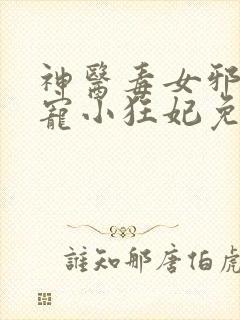 神醫毒女邪
寵小狂妃免
誰知那唐伯虎